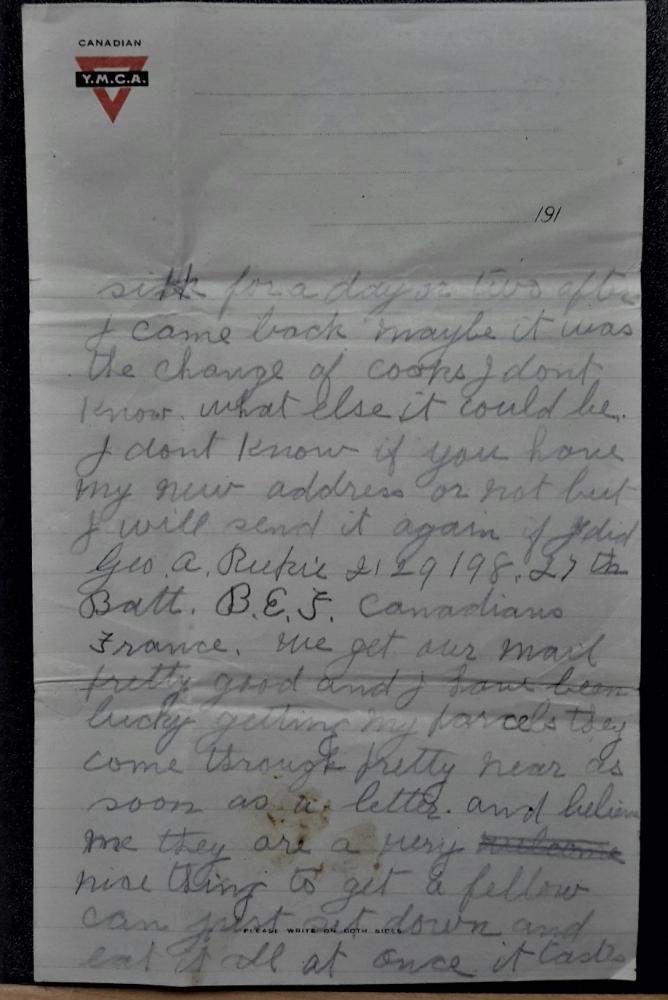 CANADIAN
Y.M.C.A.
191
sick for a day or two after
I came back maybe it was
the change of cooks I dont
know. what else it could be.
I dont know if you have
my new address or not but
I will send it again if I did
Geo. A. 2129198. 27th
Batt. B.E.F. Canadians
France. We get our mail
pretty good and I have been
lucky getting my parcels they
come through pretty near as
soon as a letter. and believe
me they are a very welcome
nice thing to get a fellow
can just set down and
PLEASE WRITE ON BOTH SIDES
eat it all at once it tastes